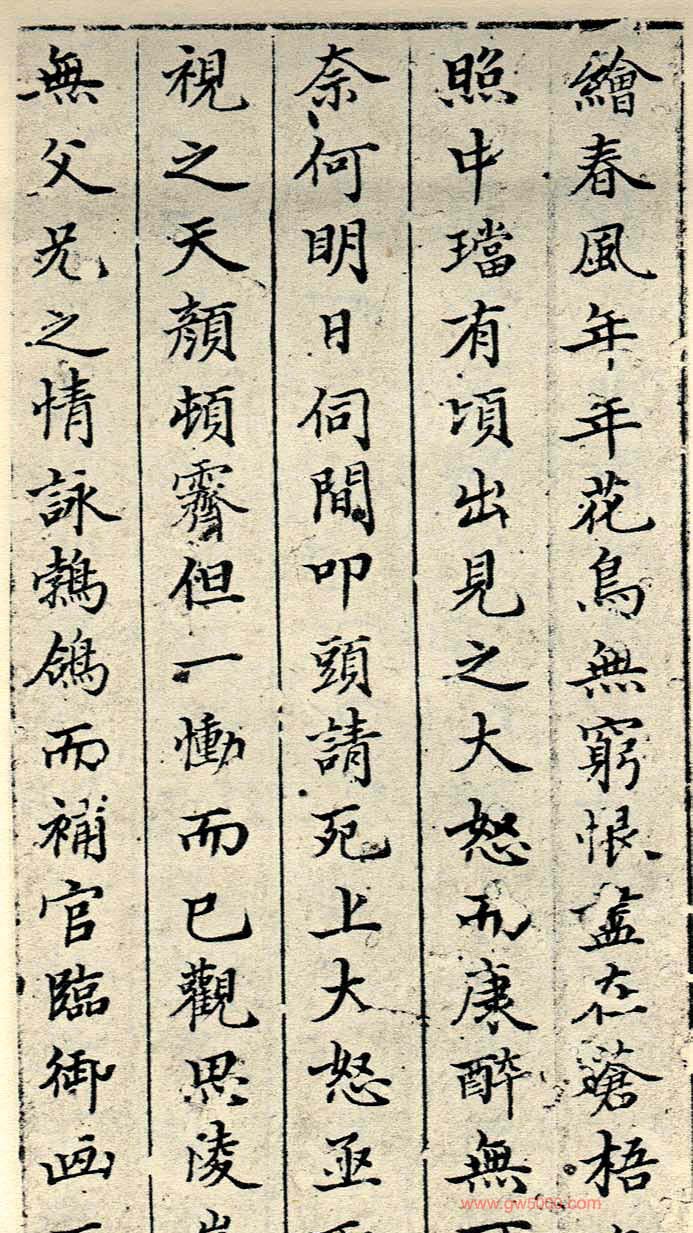 繪春風年年花鳥無窮恨盡在蒼梧
照中璫有頃出見之大怒而康醉無
奈何明日伺間叩頭請死上大怒亟
視之天顏頓霽但一慟而已觀思陵
無父兄之情詠鶺鴒而補官臨御画
www.gw5000.com